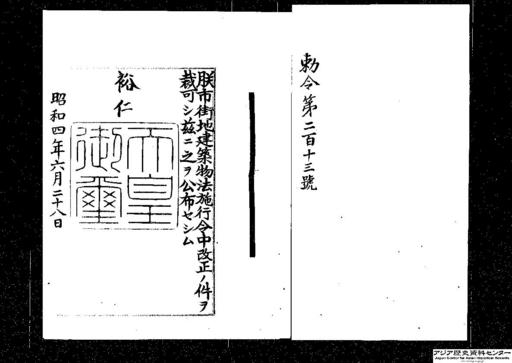 勅令第二百十三號
朕市街地建築物法施行令中改正ノ件ヲ
裁可シ玆ニ之ヲ公布セシム
裕仁
天皇
御璽
昭和四年六月二十八日
アジア歴史資料センター
Japan Center for Asian Historical Records